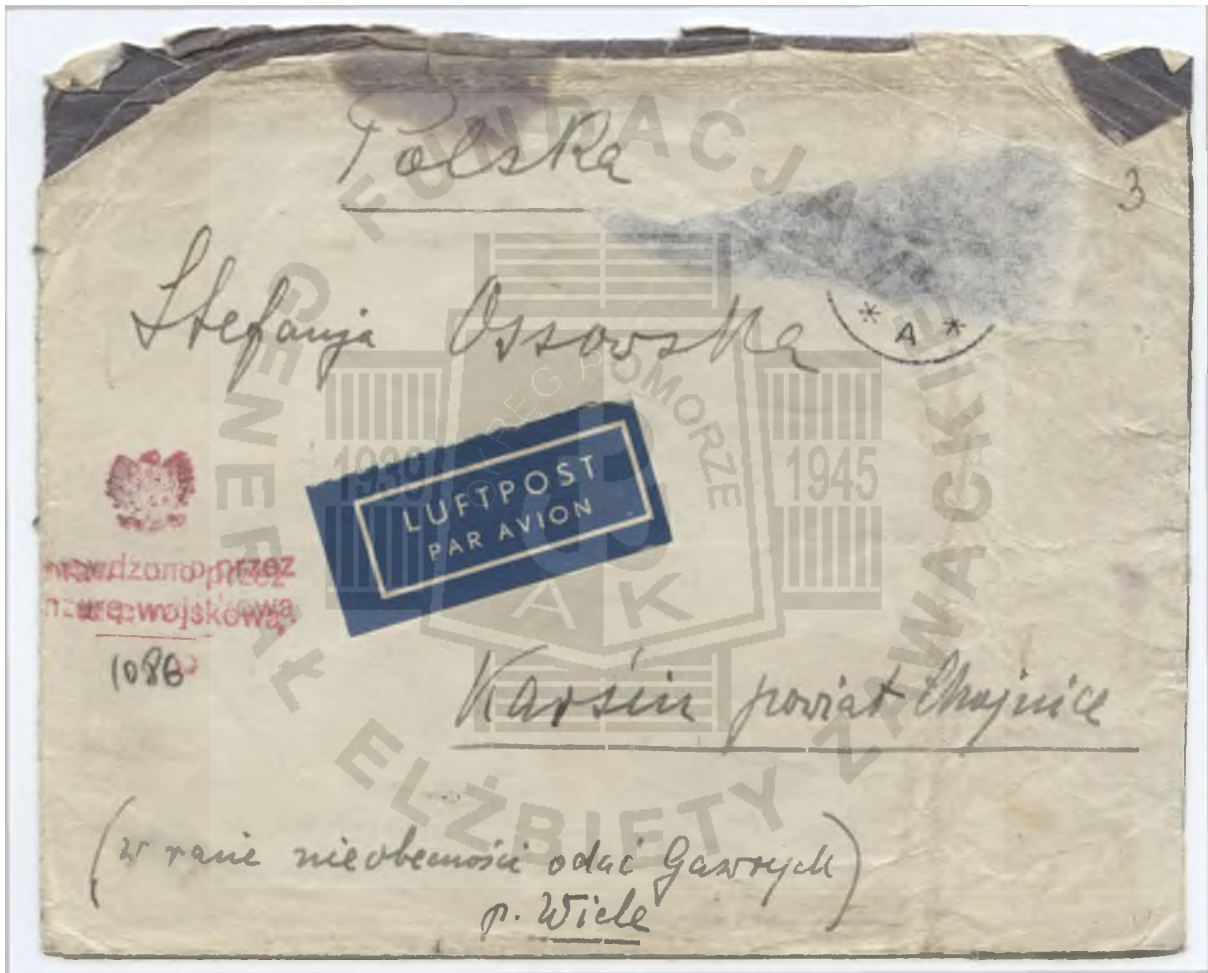 Polska
3
Stefanja Ossowska
* A *
LUFTPOST
PAR AVION
rawdzono przez
nzurę wojskową
1086
Karsin powiat Chojnice
(w razie nieobecności odać Gawrych)
p. Wiele
FUNDACJA GENERAŁ ELŻBIETY ZAWACKIEJ
OKRĘG POMORZE
1939
1945
AK